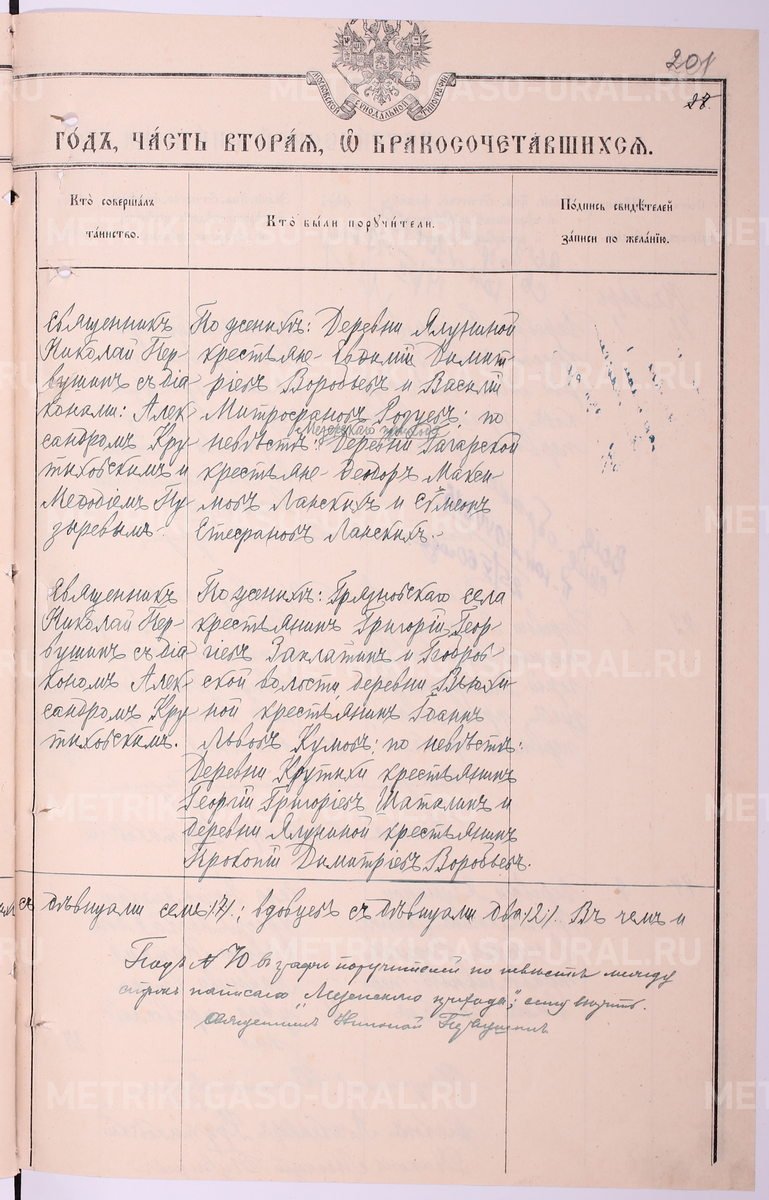 201
28.
МОСКОВСКОЙ СѴНОДАЛЬНОЙ ТИПОГРАФІИ
ГОДЪ, ЧАСТЬ ВТОРАЯ, Ѡ БРАКОСОЧЕТАВШИХСЯ.
Кто совершалъ таинство.
Кто были поручители.
Подпись свидѣтелей записи по желанію.
Священникъ
Николай Пер-
вушинъ съ діа
конами: Алек-
сандромъ Кру-
тиховскимъ и
Меѳодіемъ Пу-
зыревымъ.
По женихѣ: Деревни Ялуниной
крестьяне - Евдокимъ Димит
ріевъ Воробьевъ и Василій
Митрофановъ; по
Мезенскаго прихода
невѣстѣ: Деревни Гагарской
крестьяне - Ѳеодоръ Макси-
мовъ Ланскихъ и Сѵмеонъ
Стефановъ Ланскихъ.-
Священникъ
Николай Пер-
вушинъ съ діа
кономъ Алек-
сандромъ Кру-
тиховскимъ.
По женихѣ: Грязновскаго села
крестьянинъ Григорій Геор-
гіевъ Заплатинъ и
ской волости деревни
ной крестьянинъ Іоаннъ
Львовъ Кумовъ; по невѣстѣ:
Деревни Крутихи крестьянинъ
Георгій Григоріевъ Шаталинъ и
Деревни Ялуниной крестьянинъ
Прокопій Димитріевъ Воробьевъ.
съ дѣвицами семь /7/.; вдовцевъ съ дѣвицами два /2/. Въ чемъ и
Подъ № 70 въ графѣ поручителей по невѣстѣ между
строкъ написано "Мезенскаго прихода";
Священникъ Николай Первушинъ
METRIKI.GASO-URAL.RU